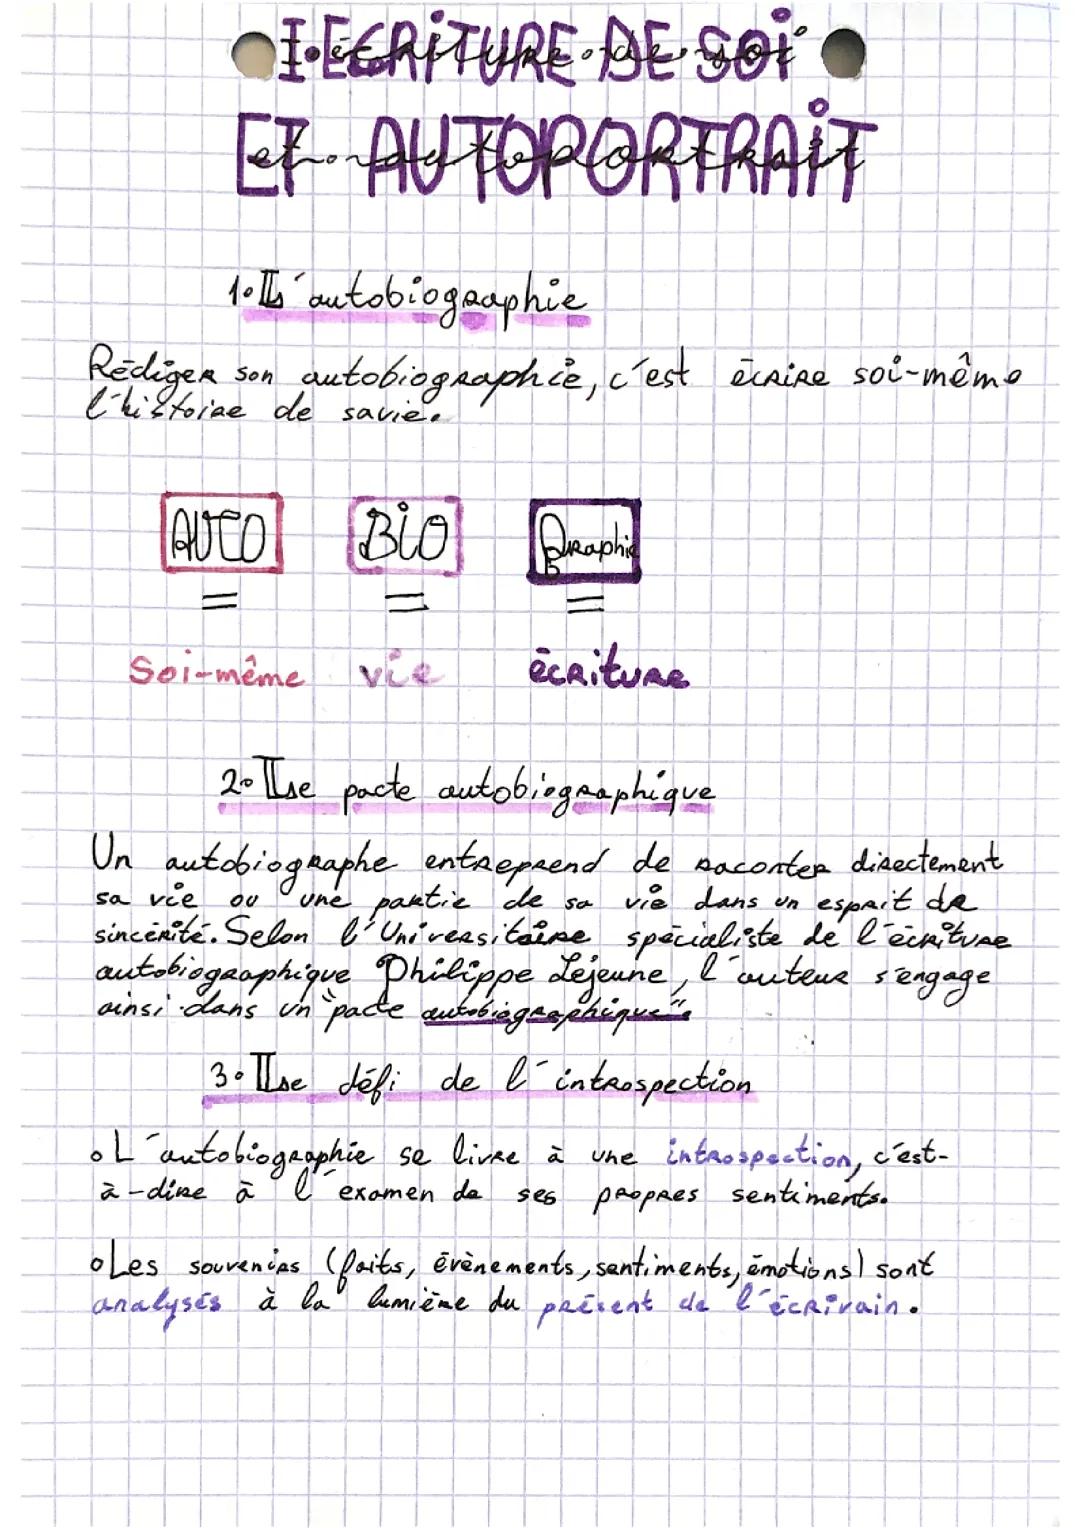 I. ECRITURE DE SOI
ET AUTOPORTRAIT
1. L'autobiographie
Rédiger son autobiographie, c'est écrire soi-même
l'histoire de savie.
AUTO BIO graphie
= = =
Soi-même vie écriture
2. Le pacte autobiographique
Un autobiographe entreprend de raconter directement
sa vie ou une partie de sa vie dans un esprit de
sincérité. Selon l'Universitaire spécialiste de l'écriture
autobiographique Philippe Lejeune, l'auteur s'engage
ainsi dans un "pacte autobiographique".
3. Le défi de l'introspection
• L'autobiographie se livre à une introspection, c'est-
à-dire à l'examen de ses propres sentiments.
• Les souvenirs (faits, évènements, sentiments, émotions) sont
analysés à la lumière du présent de l'écrivain.